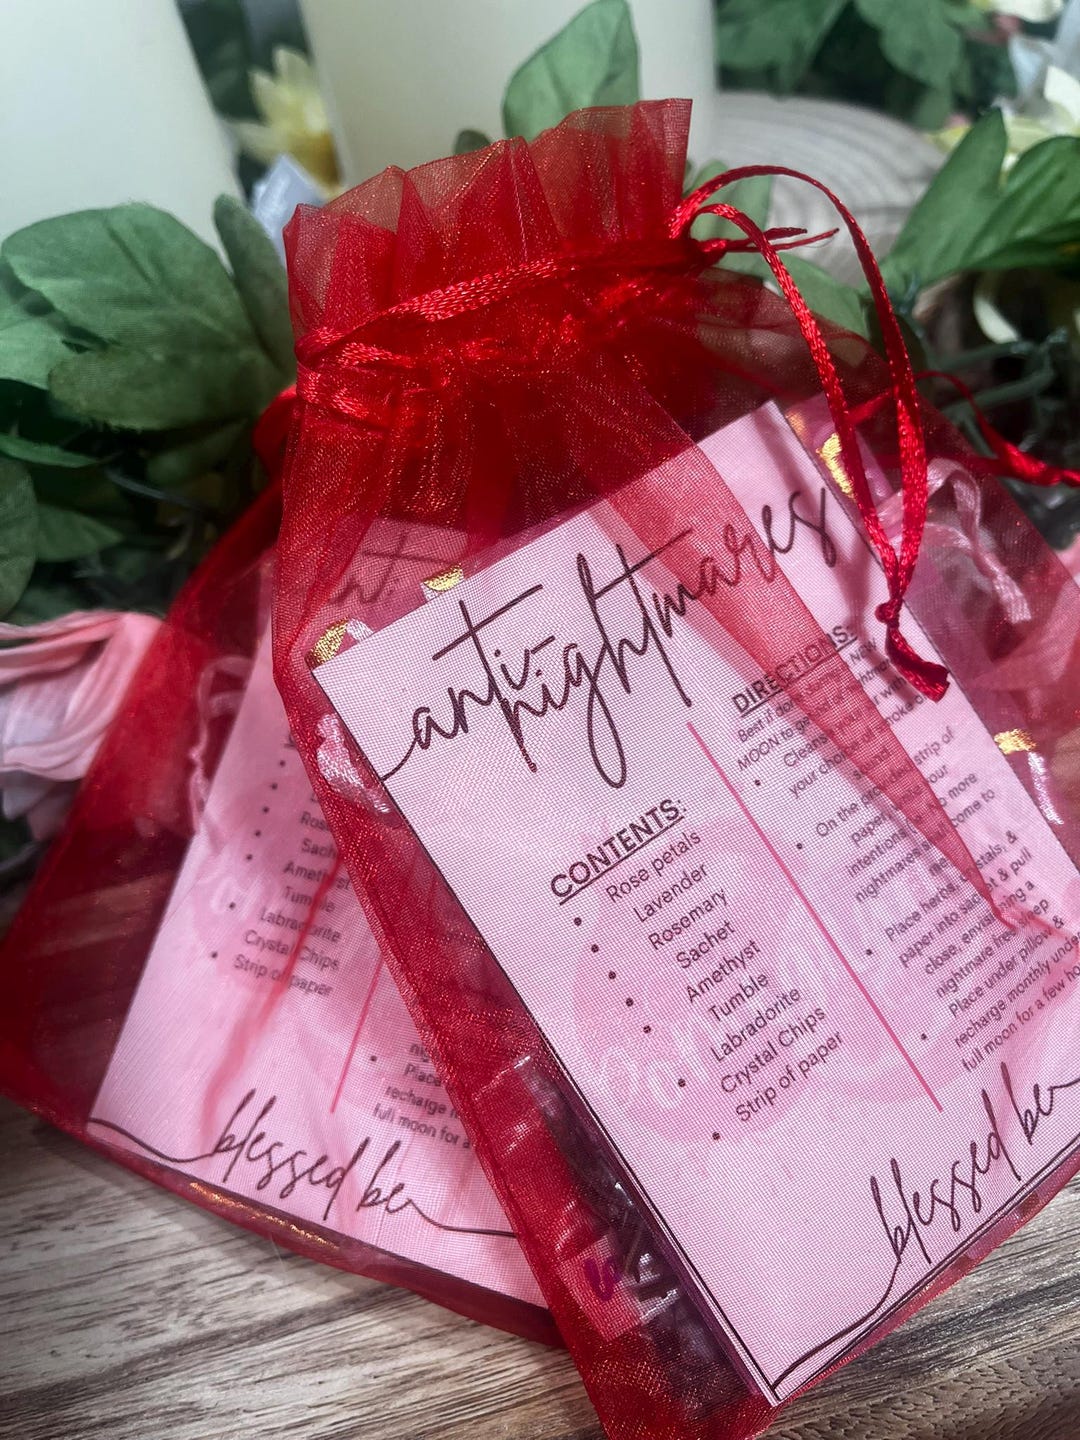 anti-
nightmares
CONTENTS:
Rose petals
Lavender
Rosemary
Sachet
Amethyst
Tumble
Labradorite
Crystal Chips
Strip of paper
DIRECTIONS:
Best if done during NEW
MOON to get rid of nightmares
Cleanse
your choice smoke
On the provided strip of
paper, write your
intentions No more
nightmares welcome to
Place herbs, crystals, &
paper into sachet & pull
close, envisioning a
nightmare free sleep
Place under pillow &
recharge monthly under
full moon for a few
blessed be
Amethyst
Tumble
Labradorite
Crystal Chips
Strip of paper
Place
recharge
full moon for a
blessed be